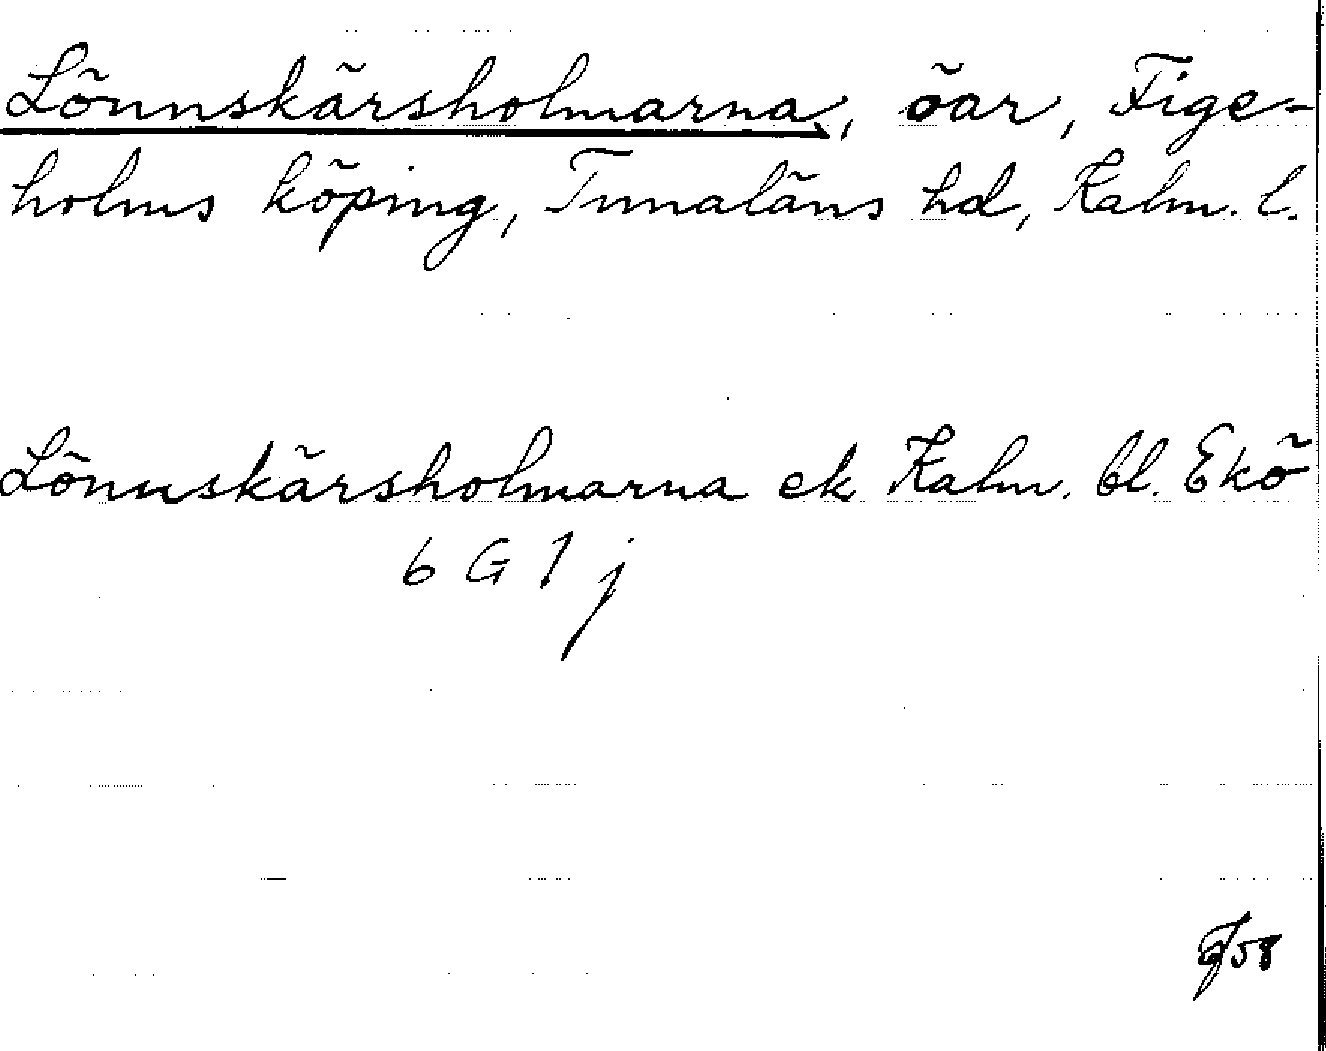 Lönnskärsholmarna, öar, Fige-
holms köping, Tunaläns hd, Kalm. l.
Lönnskärsholmarna ek Kalm. bl. Ekö
6 G 1 j
58